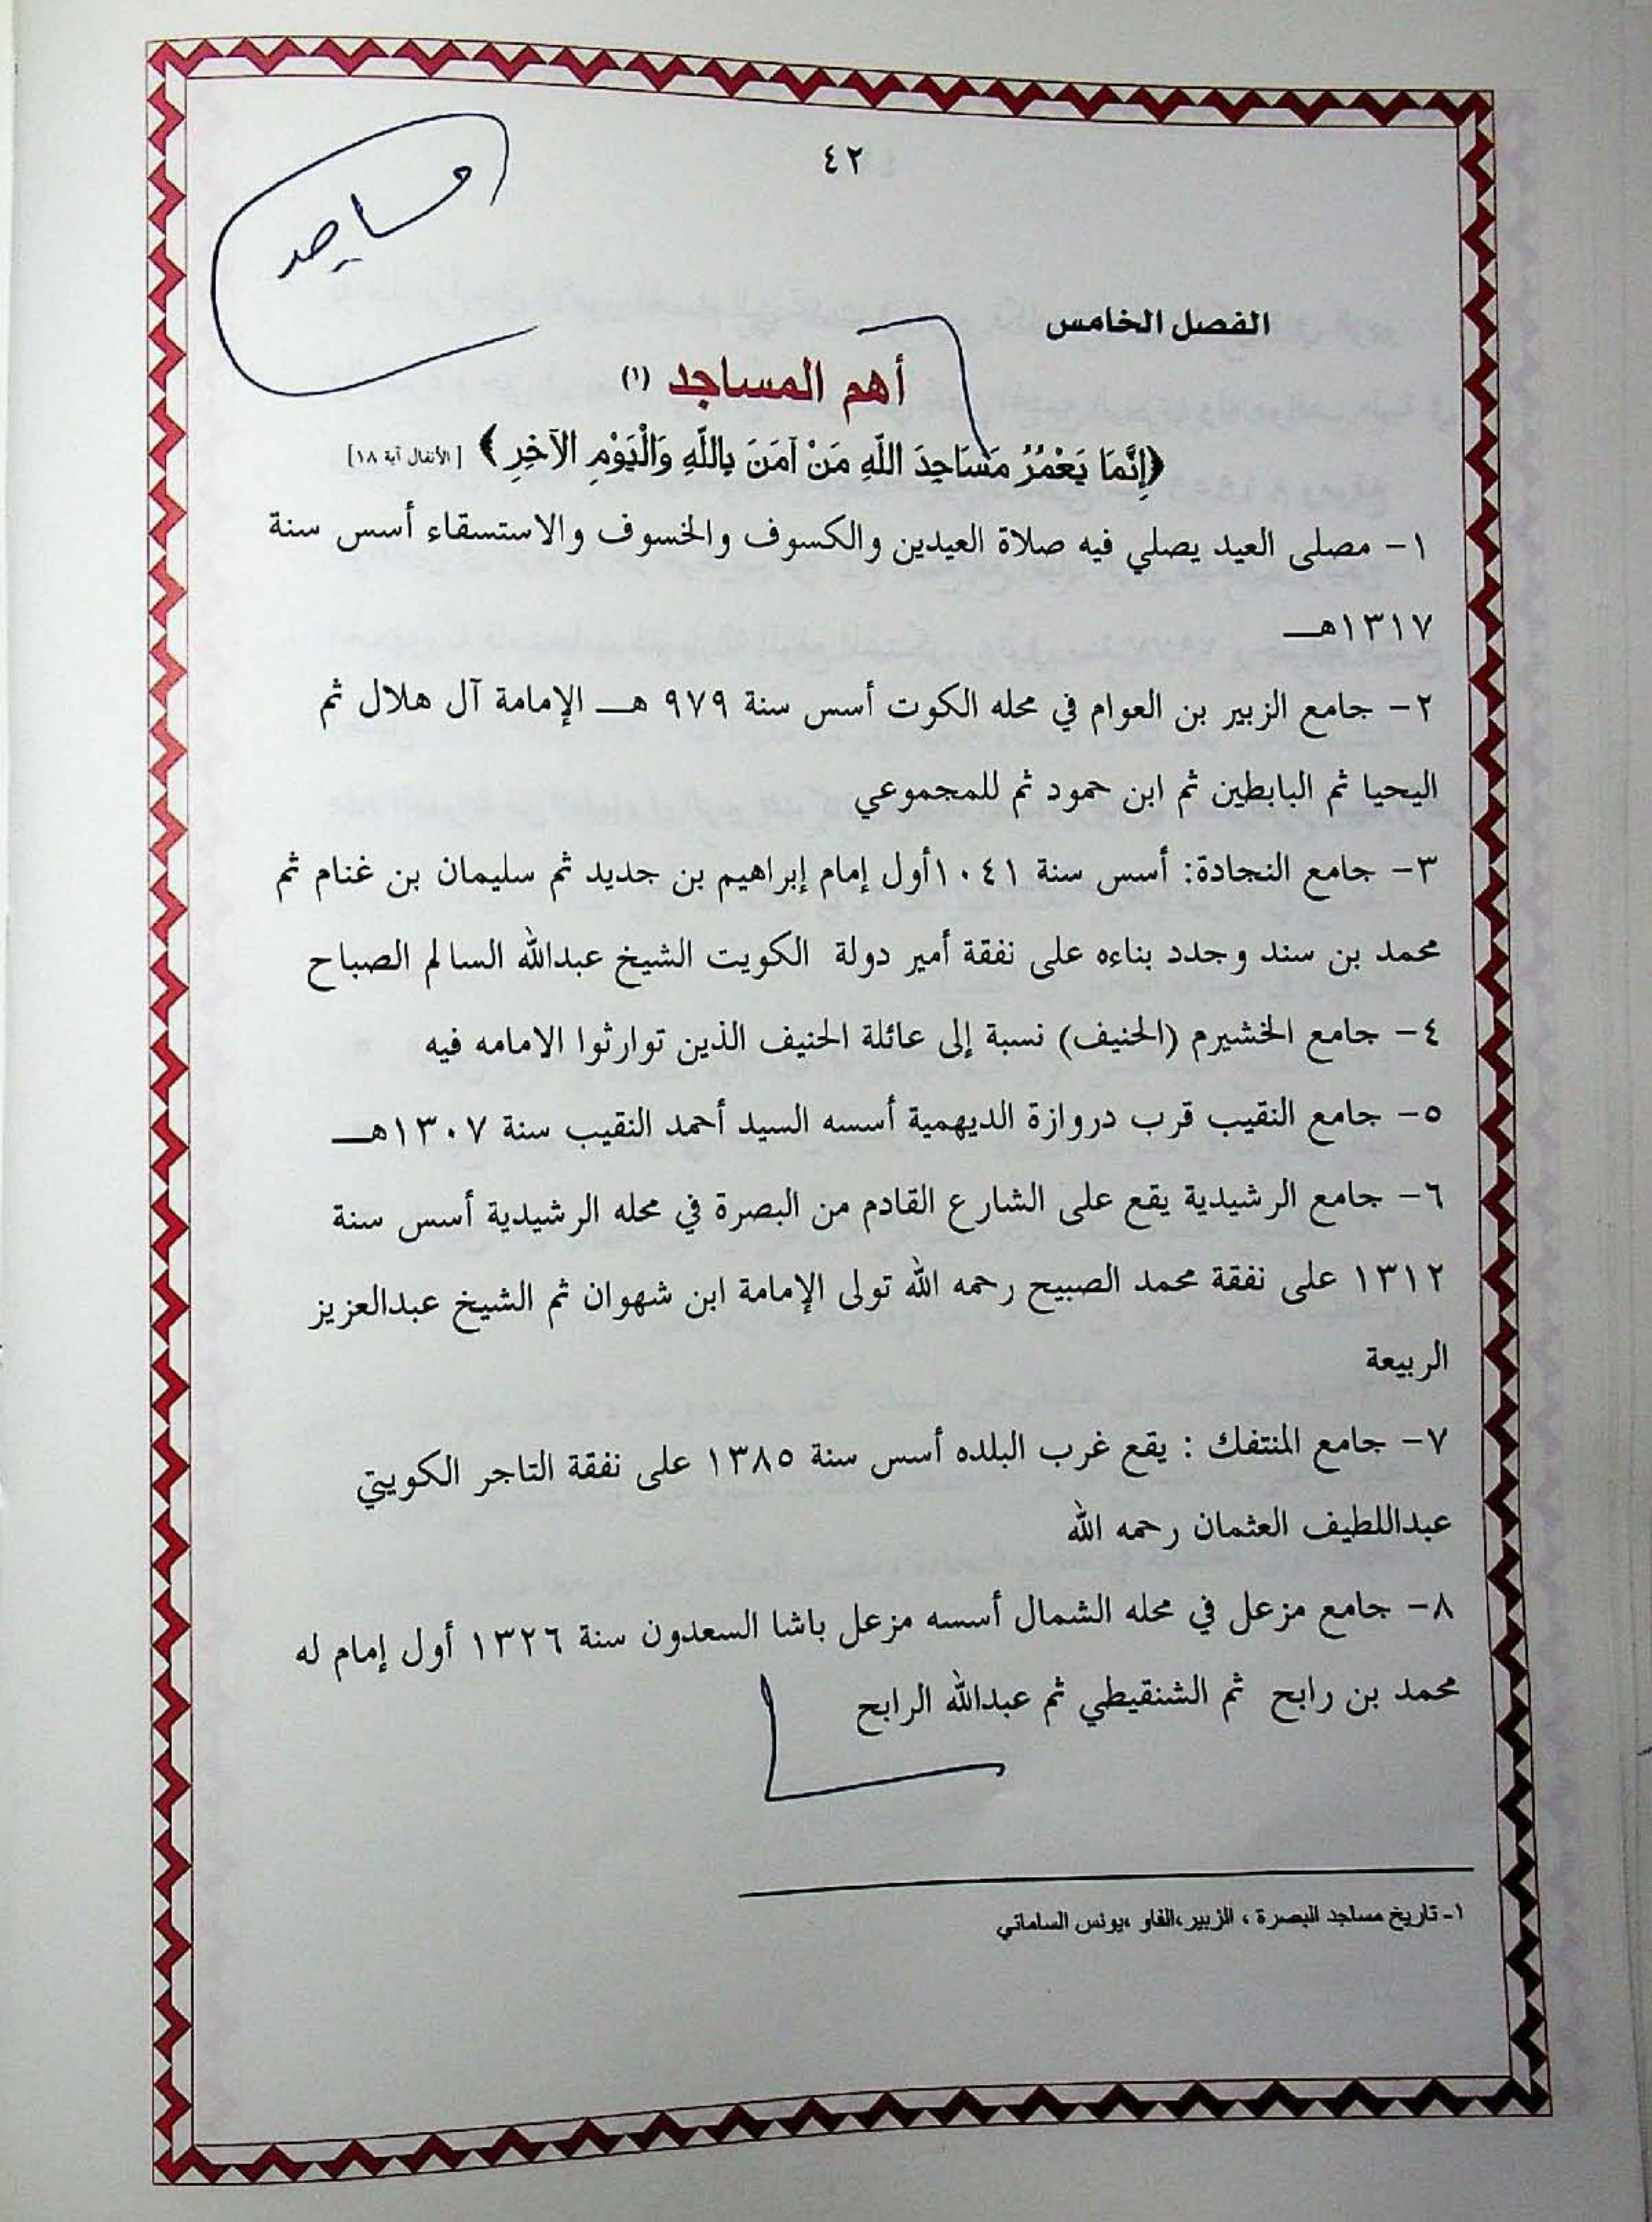 ٤٢
مساجد
الفصل الخامس
أهم المساجد (١)
﴿إِنَّمَا يَعْمُرُ مَسَاجِدَ اللَّهِ مَنْ آمَنَ بِاللَّهِ وَالْيَوْمِ الآخِرِ﴾ [الأنفال آية ١٨]
١- مصلى العيد يصلي فيه صلاة العيدين والكسوف والخسوف والاستسقاء أسس سنة
١٣١٧هـ
٢- جامع الزبير بن العوام في محله الكوت أسس سنة ٩٧٩ هـ الإمامة آل هلال ثم
اليحيا ثم البابطين ثم ابن حمود ثم للمجموعي
٣- جامع النجادة: أسس سنة ١٠٤١أول إمام إبراهيم بن جديد ثم سليمان بن غنام ثم
محمد بن سند وجدد بناءه على نفقة أمير دولة الكويت الشيخ عبدالله السالم الصباح
٤- جامع الخشيرم (الحنيف) نسبة إلى عائلة الحنيف الذين توارثوا الامامه فيه
٥- جامع النقيب قرب دروازة الديهمية أسسه السيد أحمد النقيب سنة ١٣٠٧هـ
٦- جامع الرشيدية يقع على الشارع القادم من البصرة في محله الرشيدية أسس سنة
١٣١٢ على نفقة محمد الصبيح رحمه الله تولى الإمامة ابن شهوان ثم الشيخ عبدالعزيز
الربيعة
٧- جامع المنتفك : يقع غرب البلده أسس سنة ١٣٨٥ على نفقة التاجر الكويتي
عبداللطيف العثمان رحمه الله
٨- جامع مزعل في محله الشمال أسسه مزعل باشا السعدون سنة ١٣٢٦ أول إمام له
محمد بن رابح ثم الشنقيطي ثم عبدالله الرابح
١- تاريخ مساجد البصرة ، الزبير،الفاو ،يونس الساماني